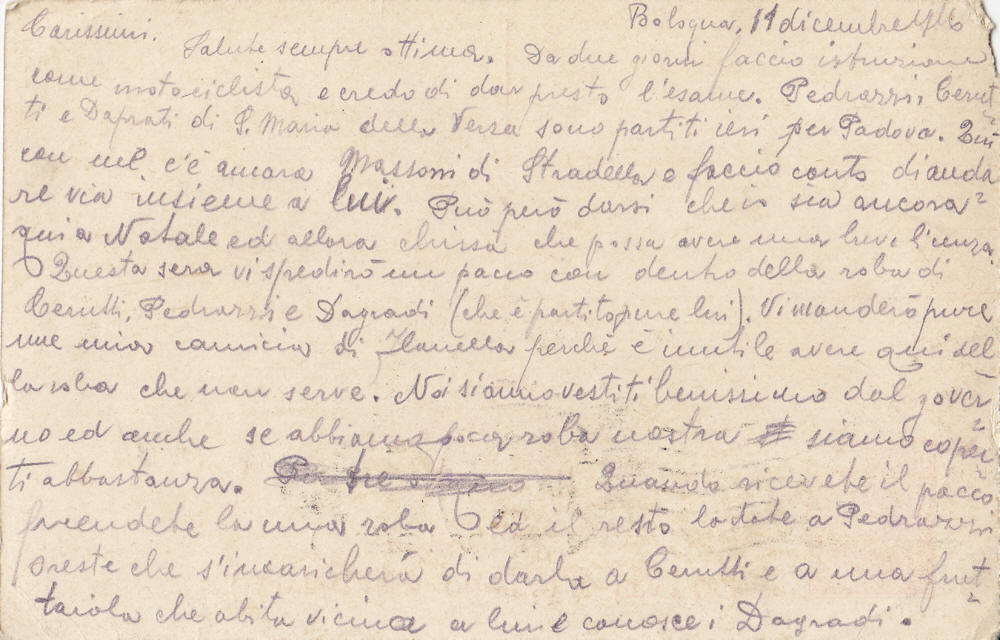 Bologna, 11 dicembre 1916
Carissimi.
Salute sempre ottima. Da due giorni faccio istruzione
come motociclista e credo di dar presto l'esame. Pedrazzi, Cerut-
ti e Daprati di S. Maria della Versa sono partiti ieri per Padova. Qui
con me c'è ancora Massoni di Stradella e faccio conto di anda
re via insieme a lui. Può però darsi che io sia ancora
qui a Natale ed allora chissà che possa avere una breve licenza.
Questa sera vi spedirò un pacco con dentro della roba di
Cerutti, Pedrazzi e Dagradi (che è partito pure lui). Vi manderò pure
una mia camicia di flanella perchè è inutile avere qui del
la roba che non serve. Noi siamo vestiti benissimo dal gover-
no ed anche se abbiamo poca roba nostra siamo coper-
ti abbastanza. Quando ricevete il pacco
prendete la mia roba ed il resto lo date a Pedrazzi
Oreste che s'incaricherà di darla a Cerutti e a una frut-
taiola che abita vicina a lui e conosce i Dagradi.